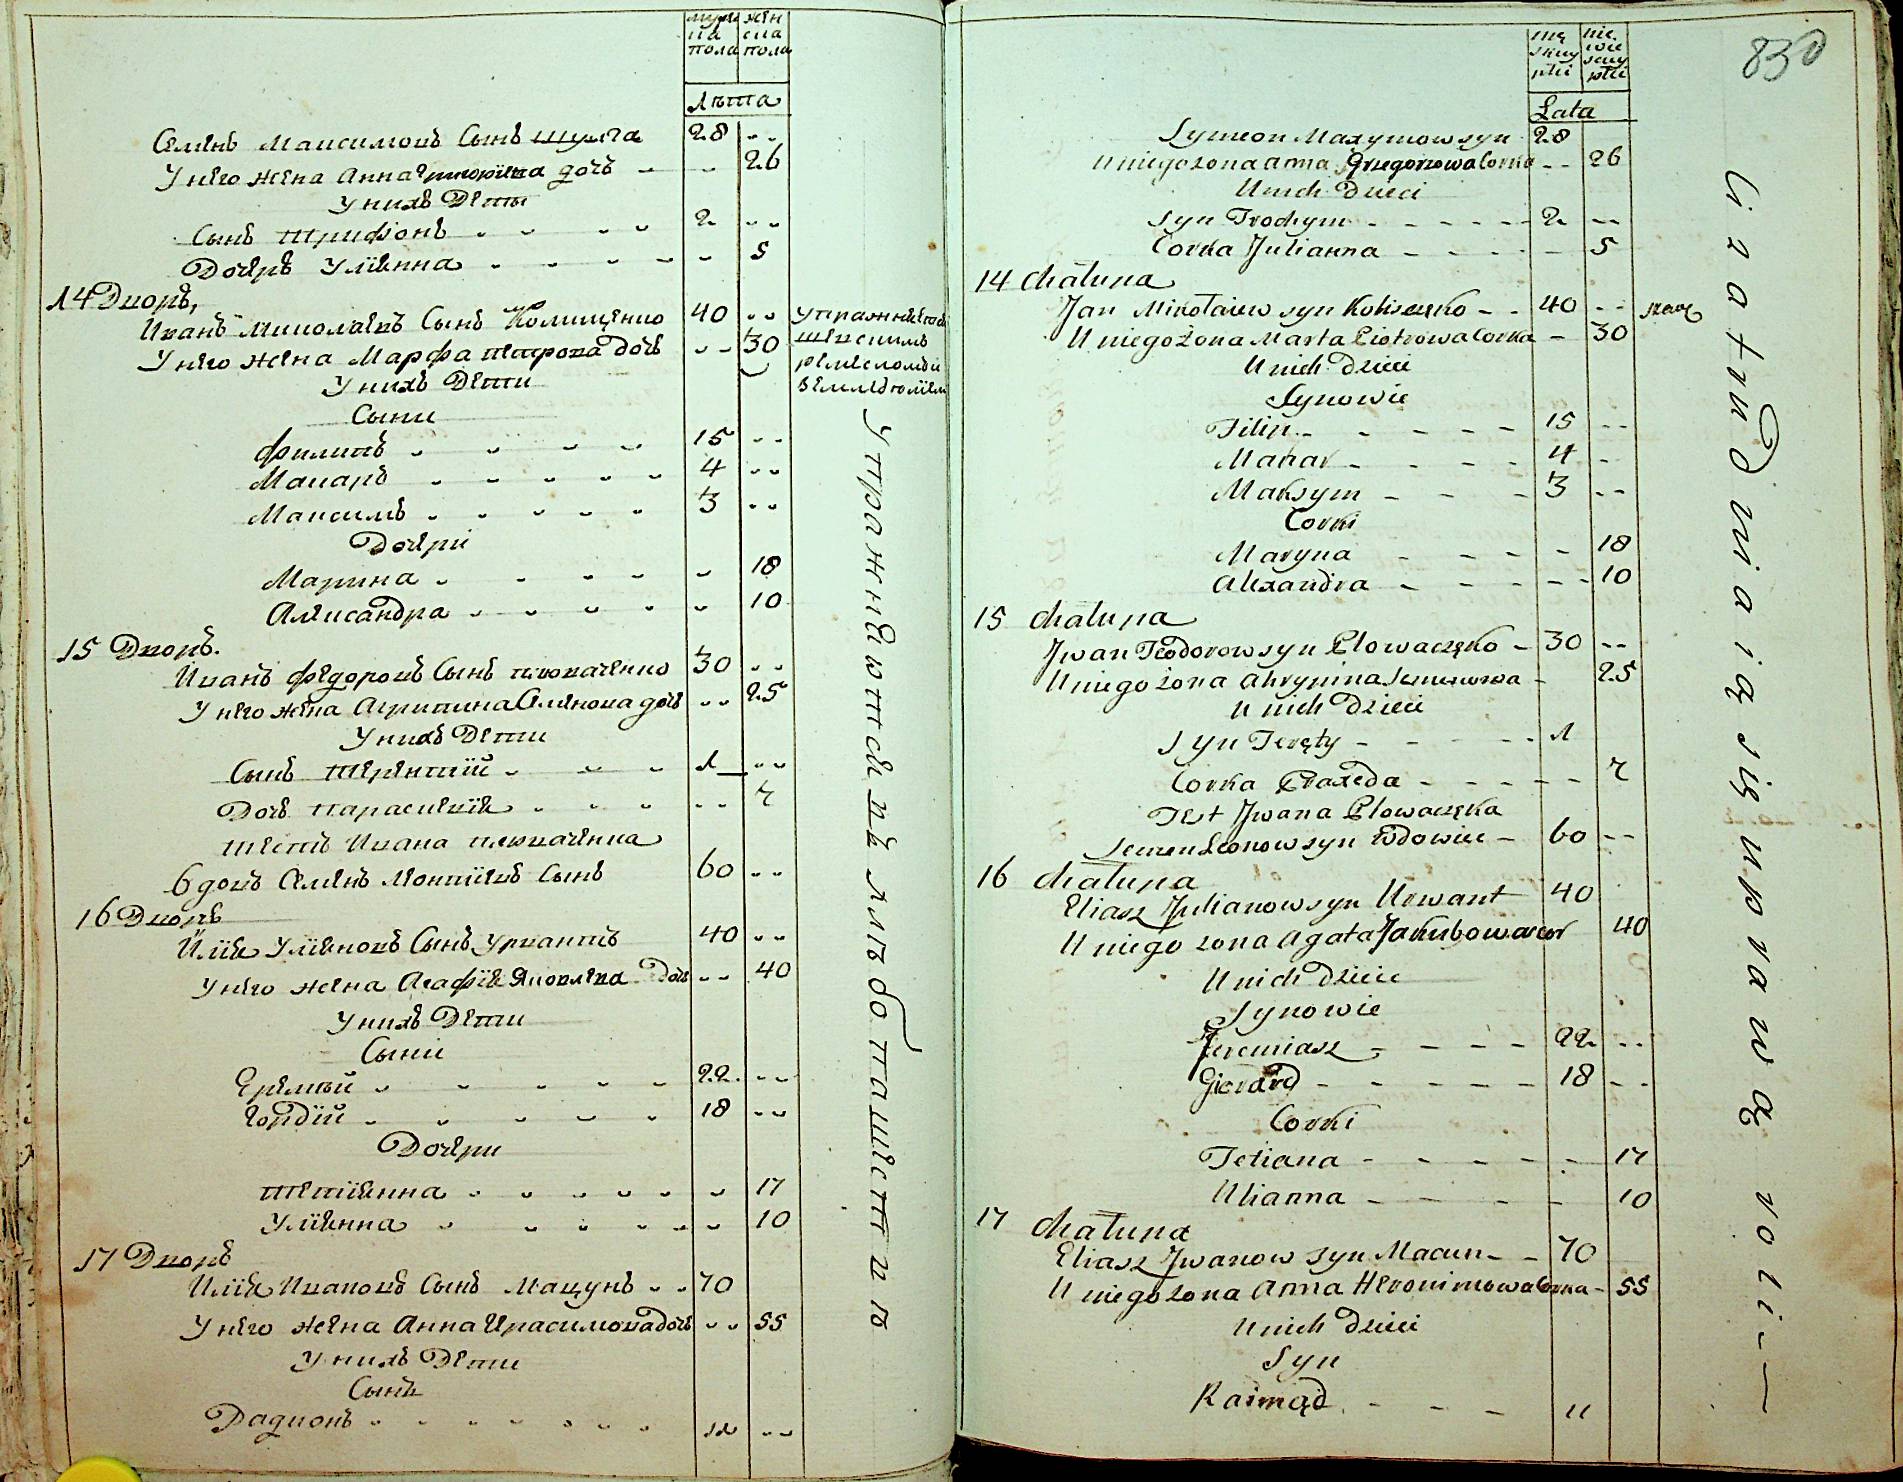 мужеска пола
женска пола
лѣта
Семенъ Максимовъ Сынъ Шульга 28
У него жена Анна Григориева дочъ 26
У нихъ Дѣти
Сынъ Трифонъ 2
Дочеръ Улїянна 5
14 Дворъ,
Иванъ Миколаевъ Сынъ Колищенко 40
У него жена Марфа Петрова дочъ 30
У нихъ Дѣти
Сыни
Филипъ 15
Макаръ 4
Максимъ 3
Дочери
Марина 18
Александра 10
15 Дворъ.
Иванъ Федоровъ Сынъ пловаченко 30
У него жена Агрипина Семенова дочъ 25
У нихъ Дѣти
Сынъ Терентий 1
Дочъ Параскевїя 7
тесть Ивана пловаченка
вдовъ Семенъ Леонтиевъ Сынъ 60
16 Дворъ
Илїя Улїяновъ Сынъ Урвантъ 40
У него жена Агафїя Яковлева Дочъ 40
У нихъ Дѣти
Сыни
Еремѣй 22
Гордїй 18
Дочери
Тетїянна 17
Улїянна 10
17 Дворъ
Илїя Ивановъ Сынъ Мацунъ 70
У него жена Анна Ирасимова дочъ 55
У нихъ Дѣти
Сынъ
Радионъ 11
упражняется
ремесломъ и
земледѣлием
Упражняются въ хлѣбопашествѣ
męskiey płci
niewieściey płci
Lata
830
Symeon Maxymow syn 28
U niego żona Anna Grzegorzowa Corka 26
U nich Dzieci
Syn Trochym 2
Corka Julianna 5
14 Chałupa
Jan Mikołaiew syn Koliszczko 40
U niego żona Marta Piotrowa Corka 30
U nich Dzieci
Synowie
Filip 15
Makar 4
Maksym 3
Corki
Maryna 18
Alexandra 10
15 Chałupa
Jwan Teodorow syn Płowaczęko 30
U niego żona Ahrypina Semenowa 25
U nich Dzieci
Syn Teręty 1
Corka Praxeda 7
Test Jwana Płowaczęka
Semen Leonow syn Wdowiec 60
16 Chałupa
Eliasz Julianow syn Urwant 40
U niego żona Agata Jakubowa cor 40
U nich Dzieci
Synowie
Jeremiasz 22
Gierard 18
Corki
Tetiana 17
Ulianna 10
17 Chałupa
Eliasz Jwanow syn Macun 70
U niego żona Anna Heronimowa Corka 55
U nich Dzieci
Syn
Raimąd 11
U zatrudniaią się uprawą roli